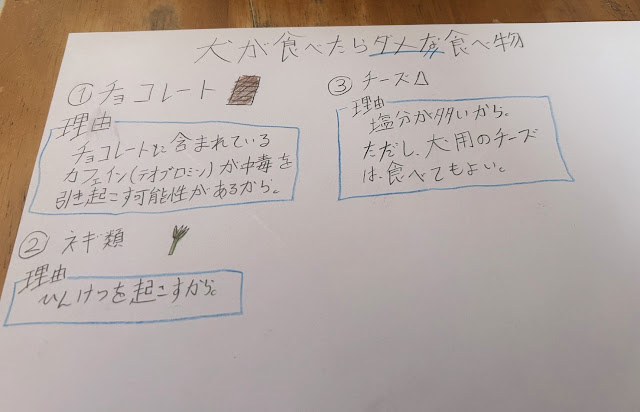 犬が食べたらダメな食べ物
① チョコレート
理由
チョコレートに含まれている
カフェイン(テオブロミン)が中毒を
引き起こす可能性があるから。
② ネギ類
理由
ひんけつを起こすから。
③ チーズ△
理由
塩分が多いから。
ただし、犬用のチーズ
は、食べてもよい。